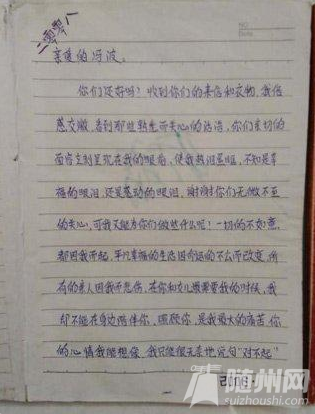 二零零八
亲爱的冯波。
你们还好吗?收到你们的来信和衣物,我倍
感交激,看到那些熟悉而关心的话语,你们亲切的
面容立刻呈现在我的眼前,使我热泪盈眶,不知是幸
福的眼泪,还是感动的眼泪,谢谢你们无微不至
的关心,可我又能为你们做些什么呢?一切的不如意,
都因我而起,平凡幸福的生活因命运的不公而改变,所
有的亲人因我而悲伤,在你和女儿最需要我的时候,我
却不能在身边陪伴你,照顾你,是我最大的痛苦,你
的心情我能想像,我只能很无奈地说句“对不起”
随州网
suizhoushi.com